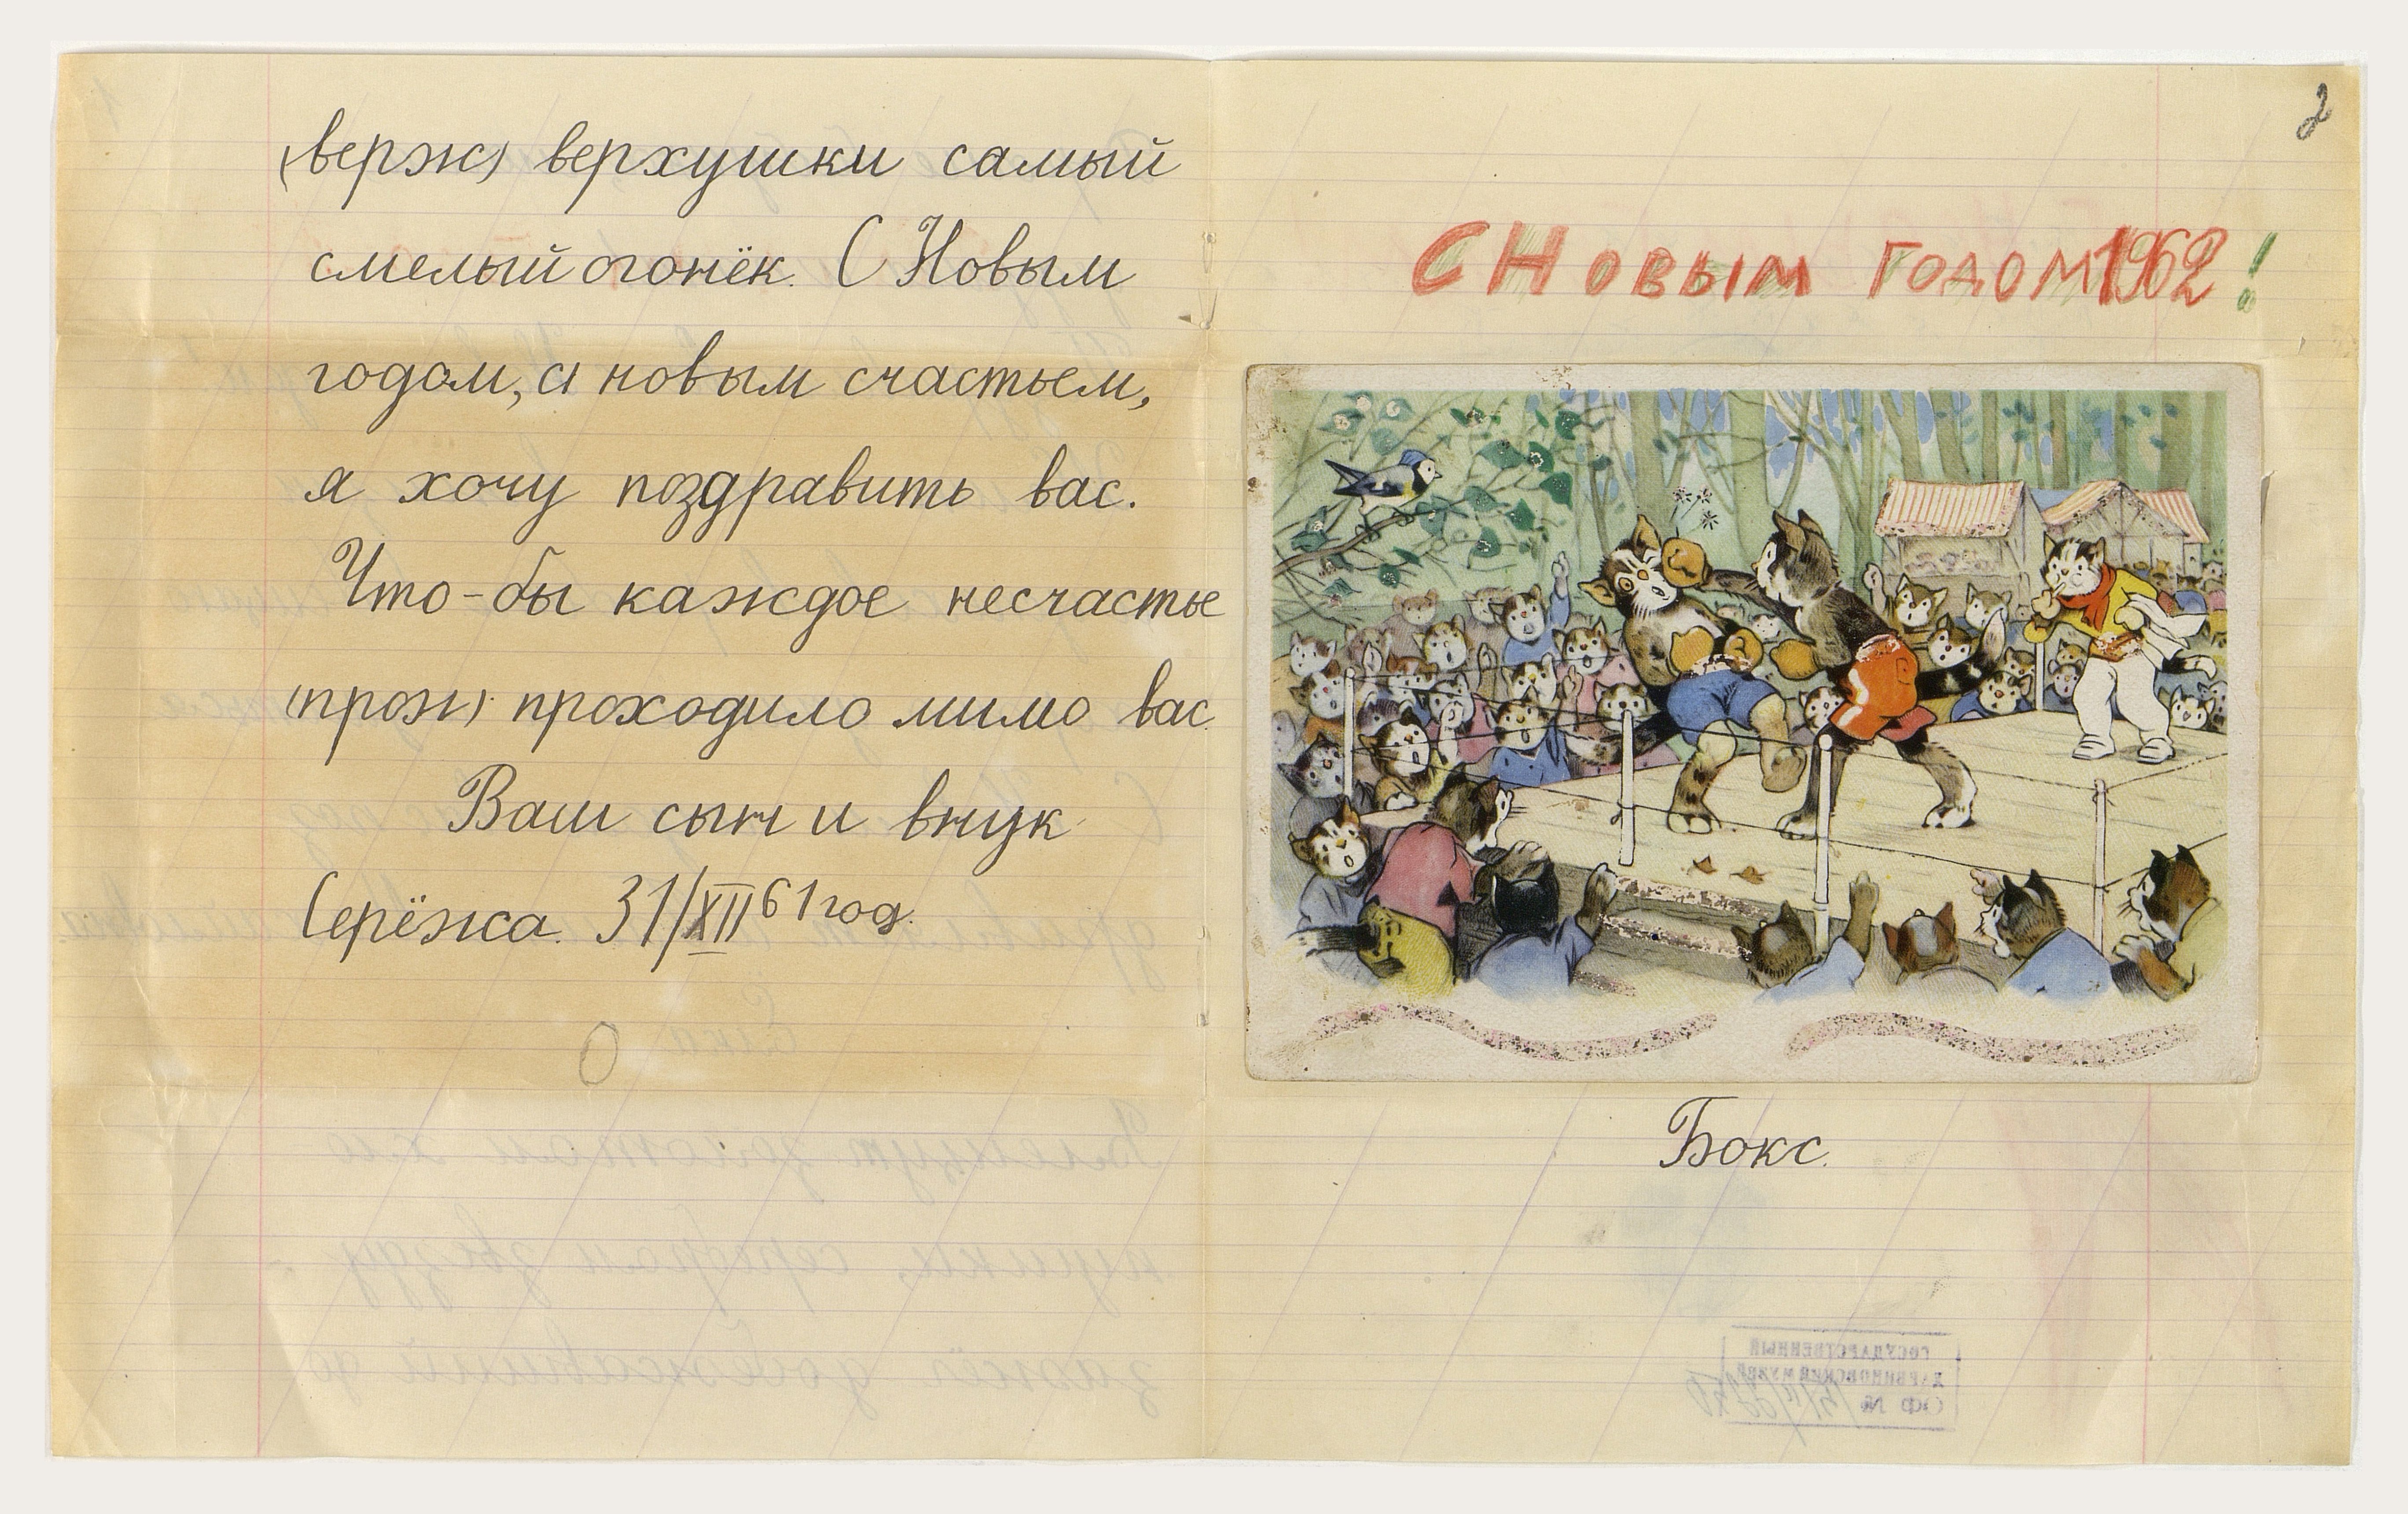 (верж) верхушки самый
смелый огонёк. С Новым
годом, с новым счастьем,
я хочу поздравить вас.
Что-бы каждое несчастье
(прож) проходило мимо вас.
Ваш сын и внук
Серёжа. 31/XII 61 год.
2
С Новым годом 1962!
Бокс.
ГОСУДАРСТВЕННЫЙ
ДАРВИНОВСКИЙ МУЗЕЙ
ОФ №